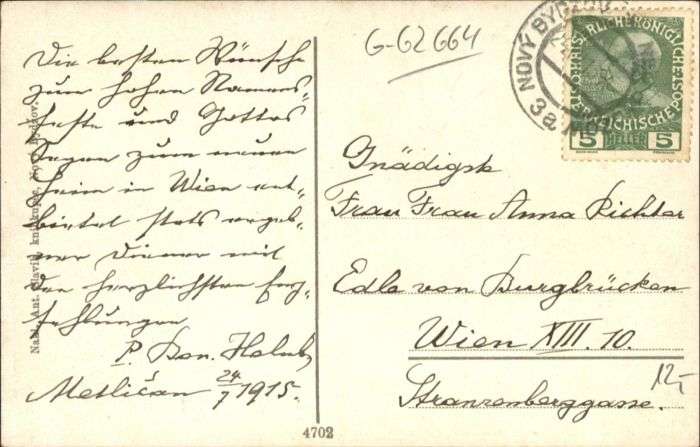 G-62664
Die besten Wünsche
zum hohen Namens-
feste und Gottes
Segen zum neuen
Heim in Wien ent-
bietet stets ergeb-
ner Diener mit
den herzlichsten Emp-
fehlungen
P. Bon. Holub
Metličan 24/7 1915.
Nakl. Ant. Slavík, knihkupec, Nový Bydžov.
4702
NOVÝ BYDŽOV
3a
5 HELLER 5
Gnädigste
Frau Frau Anna Richter
Edle von Burgbrücken
Wien XIII. 10.
Stranzenberggasse.
12,-